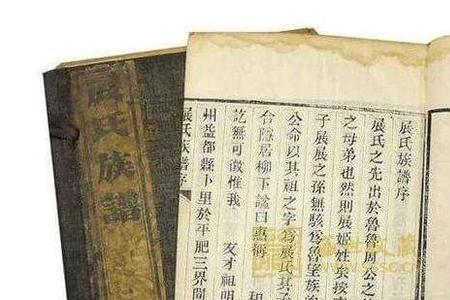 展氏族譜序
展氏之先出於魯魯周公之
之母弟也然則展姬姓矣挨
子展展之孫無駭為魯望族
公命以其祖之字為展氏其
隱居柳下諡曰惠稱 和
訖無可徵惟我 友才祖明
州益都縣卜里於平肥三界間
展氏族譜序
展氏族譜